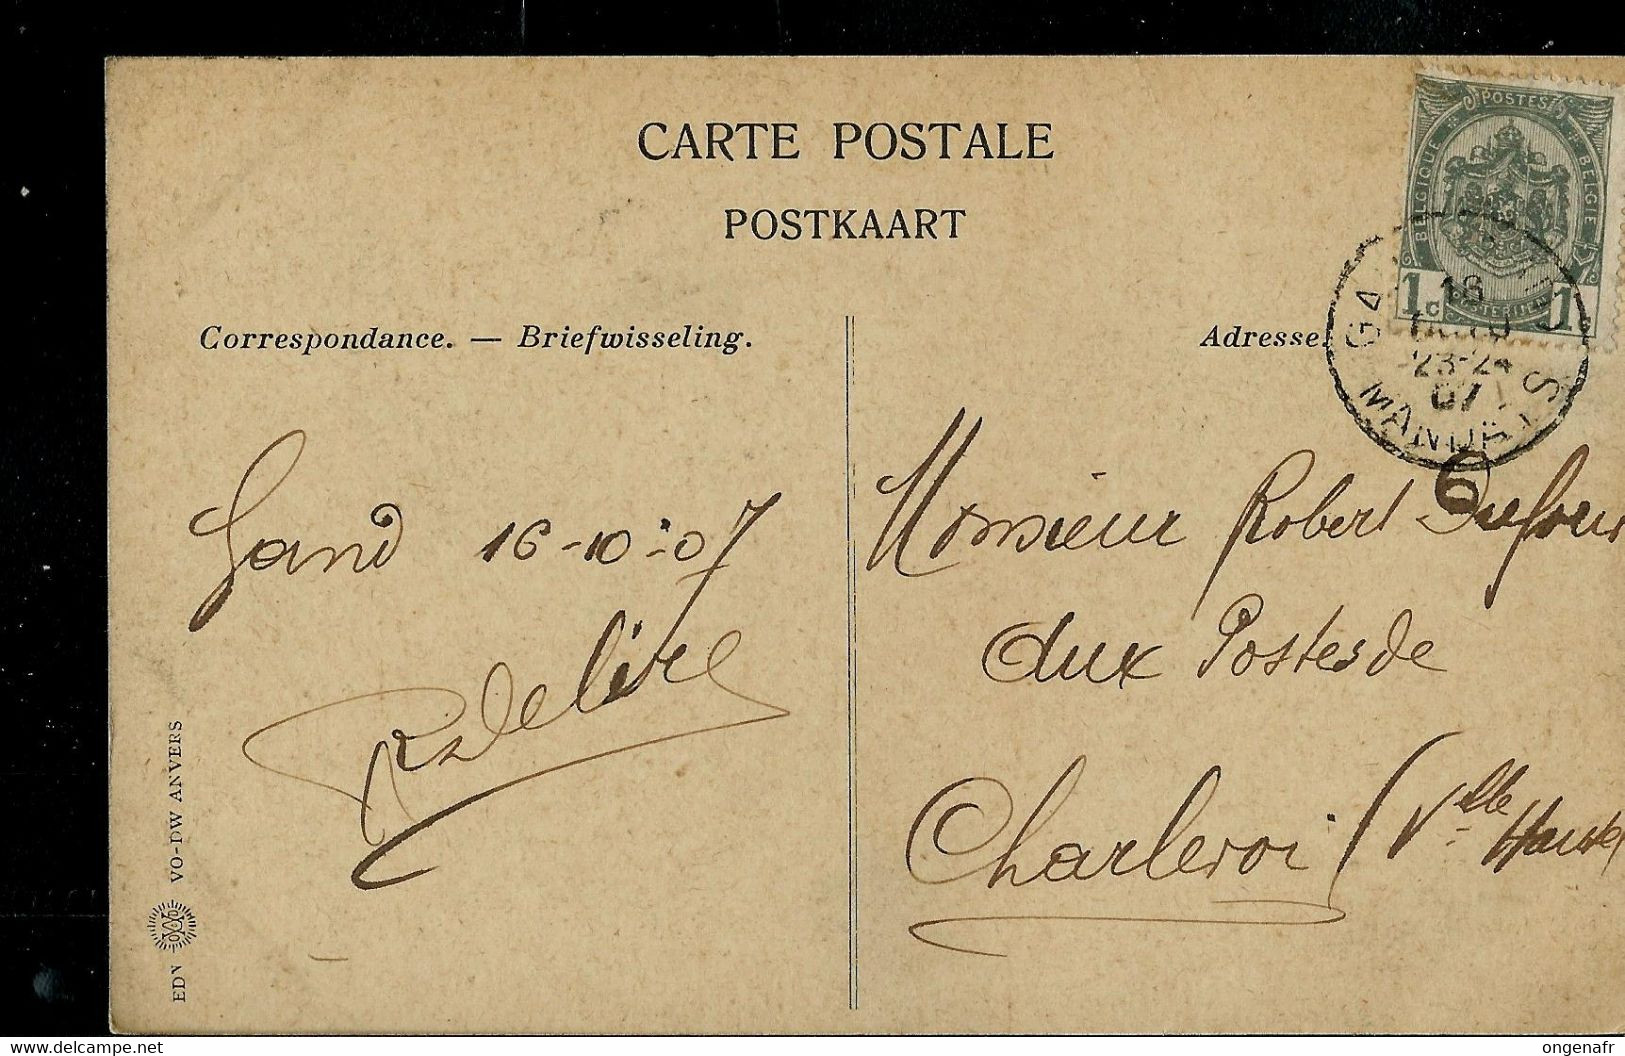 CARTE POSTALE
POSTKAART
POSTES
BELGIQUE
BELGIE
1c
1c
Correspondance. — Briefwisseling.
Adresse.
16
23-24
07
Gand 16-10-07
Monsieur Robert Dufour
aux Postes de
Charleroi (Ville Haute)
6
EDN VO-DW ANVERS
www.delcampe.net
ongenafr